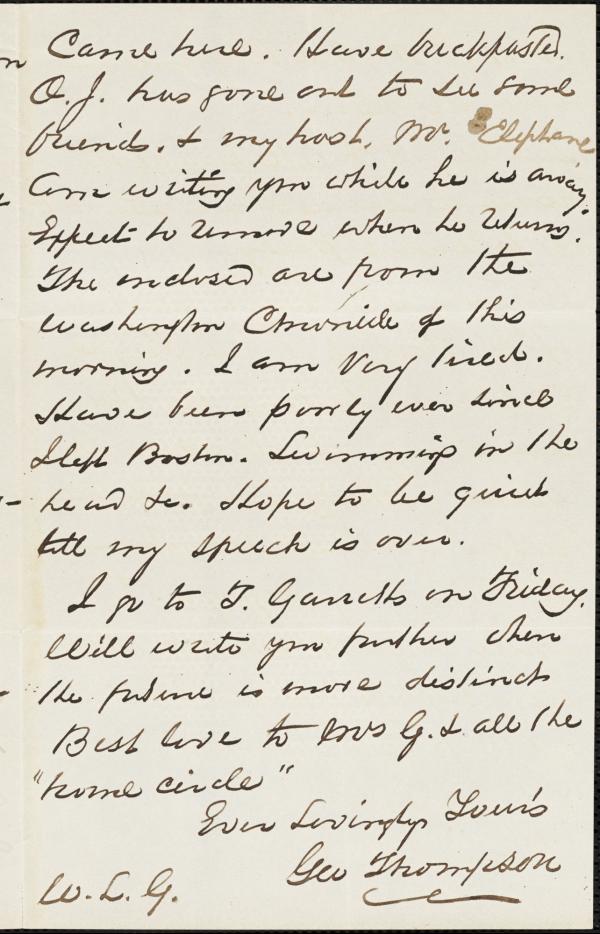 Came here. Have breakfasted.
O. J. has gone out to see some
friends, & my host, Mr. Elephane
Am writing you while he is away.
Expect to remove when he returns.
The enclosed are from the
Washington Chronicle of this
morning. I am very tired.
Have been poorly ever since
I left Boston. Swimming in the
head &c. Hope to be quiet
till my speech is over.
I go to T. Garretts on Friday.
Will write you further when
the future is more distinct
Best love to Mrs G. & all the
"home circle"
Ever Lovingly Yours
Geo Thompson
W. L. G.